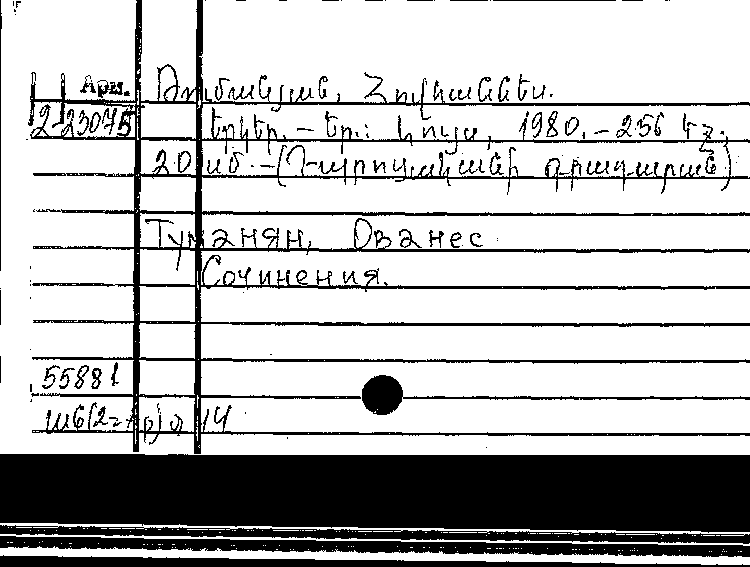 Арм. Թումանյան, Հովհաննես.
2-23075 Երկեր. – Եր.: Լույս, 1980. – 256 էջ;
20 սմ. – (Դպրոցական գրադարան)
Туманян, Ованес
Сочинения.
55881
Ш6(2=Ар)я 14